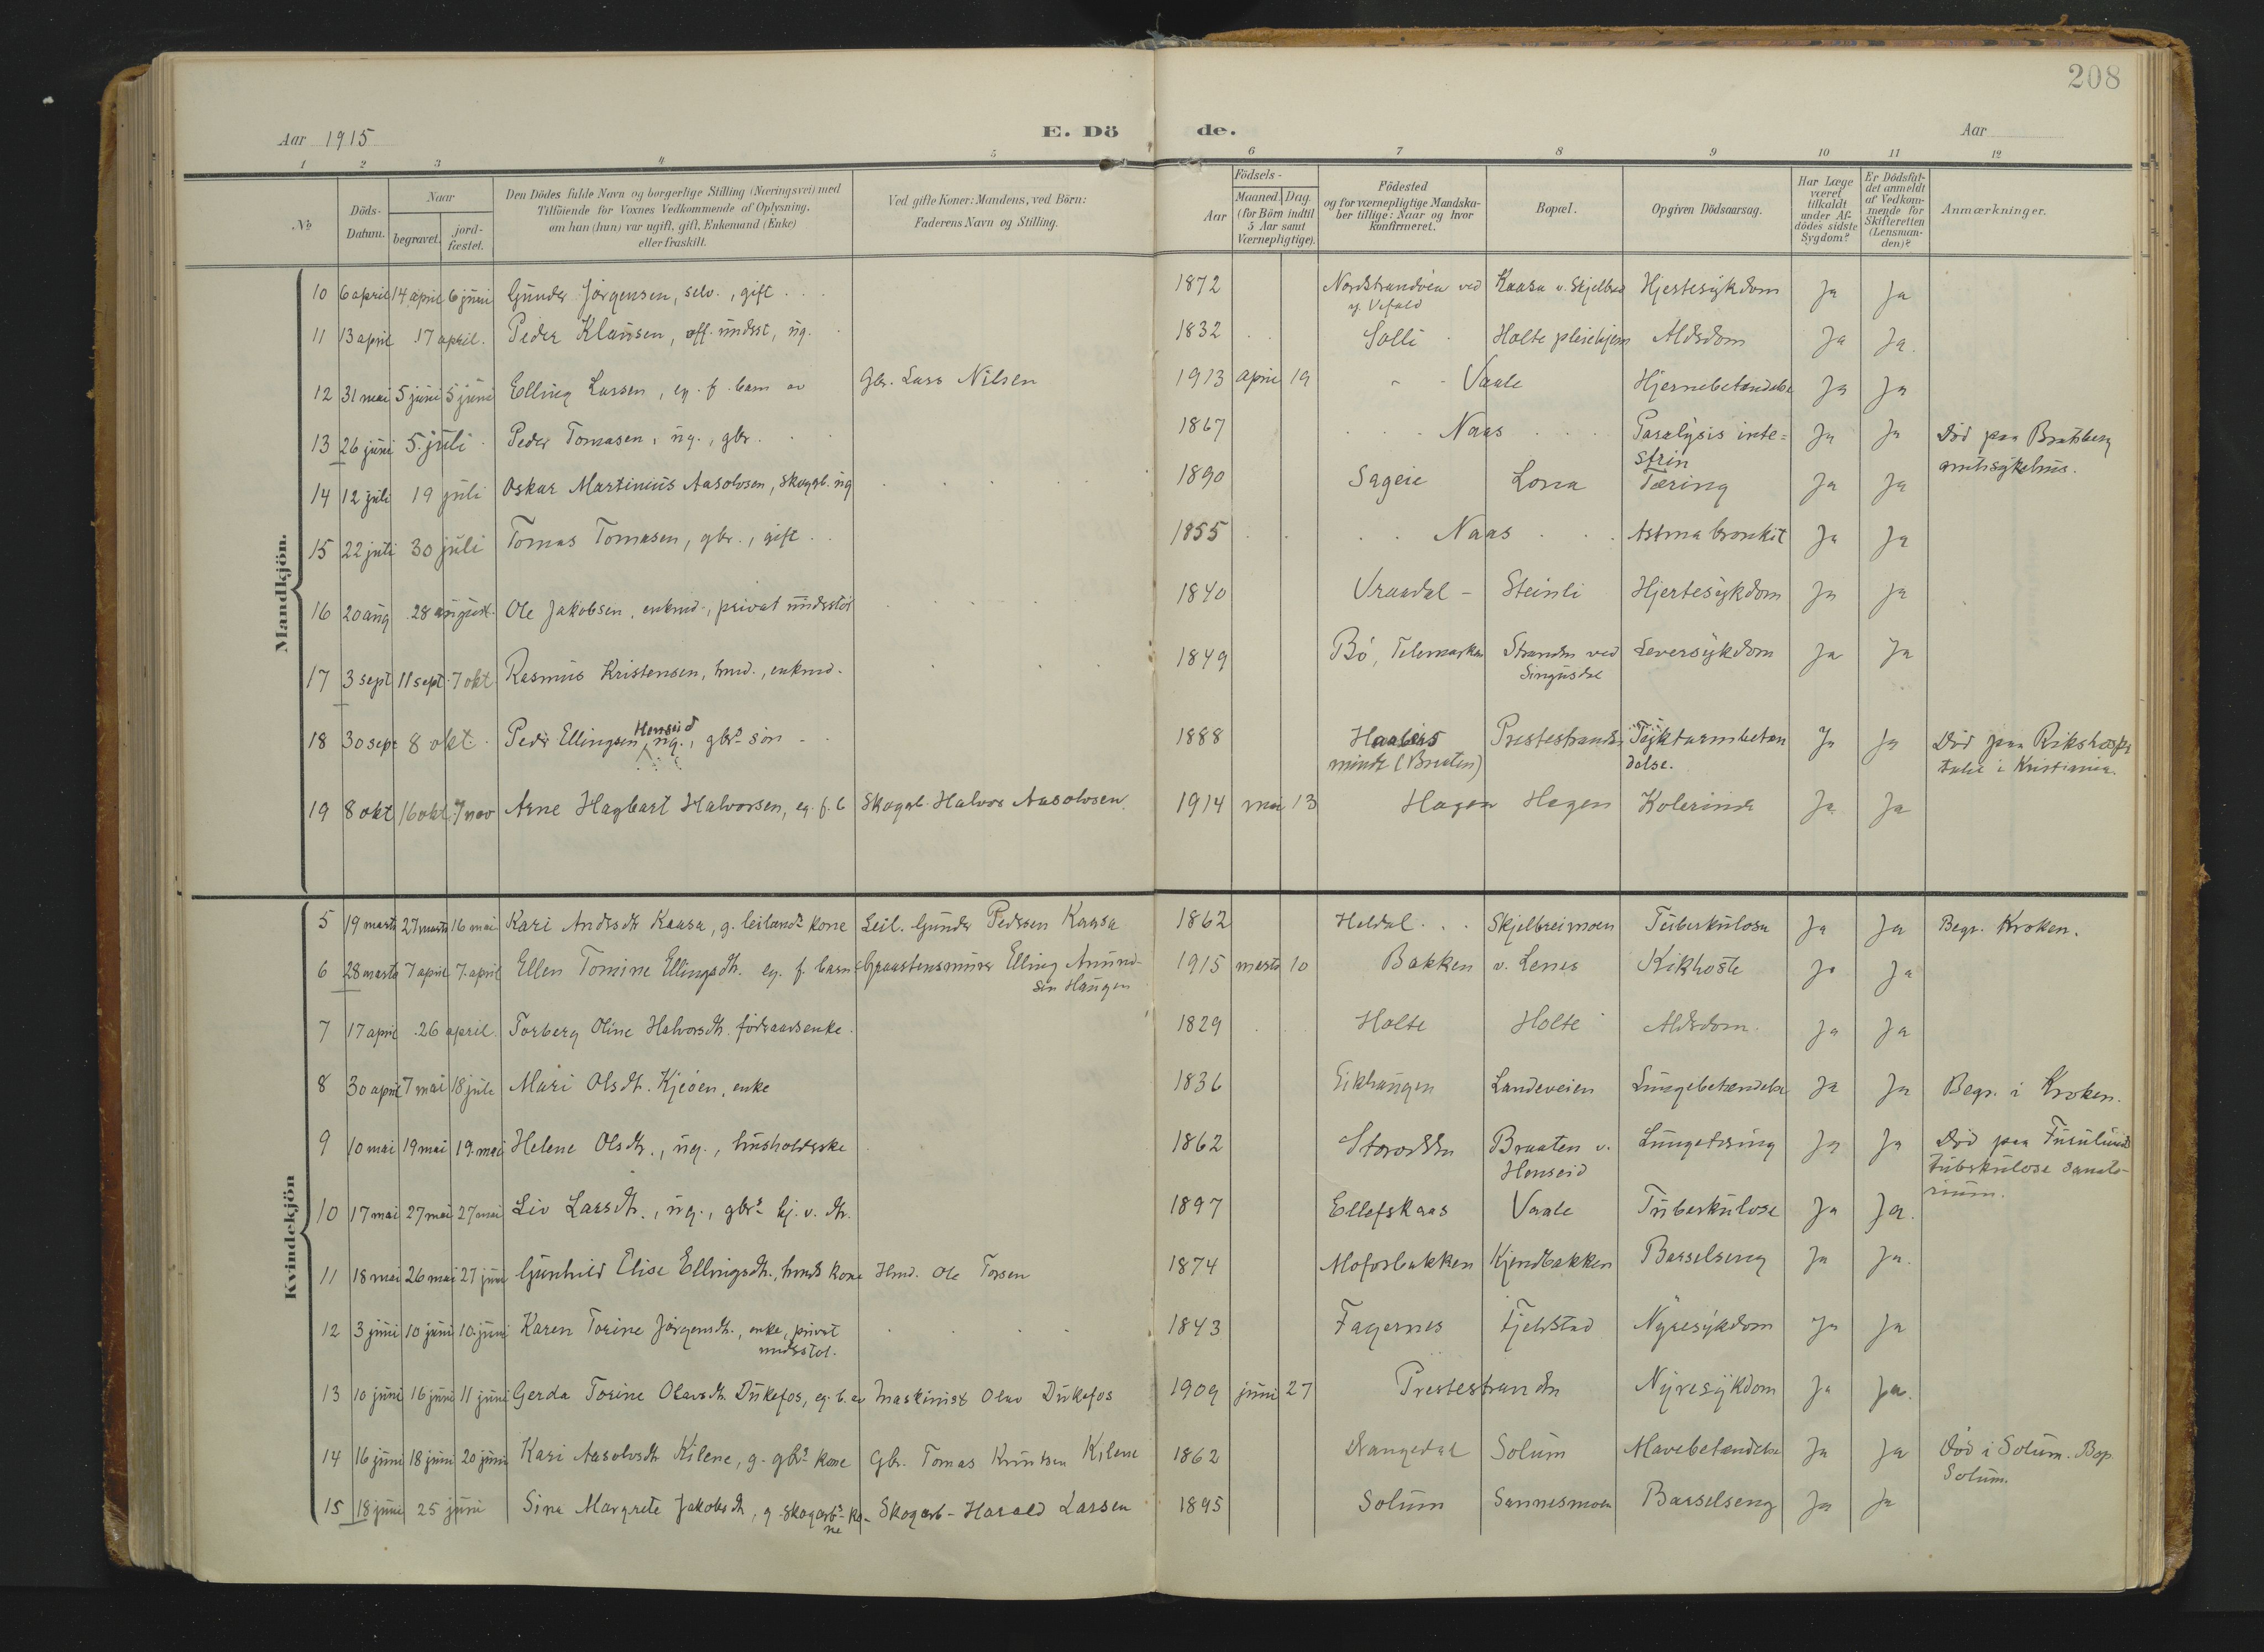 208
Aar 1915 E. Dö de. Aar
1 2 3 4 5 6 7 8 9 10 11 12
No
Döds-Datum.
Naar
begravet.
jord-fæstet.
Den Dödes fulde Navn og borgerlige Stilling (Næringsvei) med
Tilföiende for Voxnes Vedkommende af Oplysning,
om han (hun) var ugift, gift, Enkemand (Enke)
eller fraskilt.
Ved gifte Koner: Mandens, ved Börn:
Faderens Navn og Stilling.
Födsels-
Aar
Maaned. Dag.
(for Börn indtil
5 Aar samt
Værnepligtige).
Födested
og for værnepligtige Mandska-
ber tillige: Naar og hvor
konfirmeret.
Bopæl.
Opgiven Dödsaarsag.
Har Læge
været
tilkaldt
under Af-
dödes sidste
Sygdom?
Er Dödsfal-
det anmeldt
af Vedkom-
mende for
Skifteretten
(Lensman-
den)?
Anmærkninger.
Mandkjön.
10 6 april 14 april 6 juni Gunder Jörgensen, selv., gift 1872 Nordstrandveien ved Kaasa v. Skjelbred Hjertesykdom Ja Ja
11 13 april 17 april. Peder Klausen, off. underst, ug. 1832 Solli Holte pleiehjem Aldrdom Ja Ja.
12 31 mai 5 juni 5 juni Elling Larsen, eg. f. barn av Gbr. Lars Nilsen 1913 april 19 Vaale Hjernebetændelse Ja Ja
13 26 juni 5. juli Peder Tomasen, ug., gbr. 1867 Naas Paralysis inte= Ja Ja Död paa Bratsberg
stin amtssykehus.
14 12 juli 19 juli Oskar Martinius Aasolvsen, skogarb. ug 1890 Sageie Lona Tæring Ja Ja
15 22 juli 30 juli Tomas Tomasen, gbr., gift 1855 Naas Astma bronkit Ja Ja
16 20 aug 28 august Ole Jakobsen, enkmd., privat understöt 1840 Vraadal - Steinli Hjertesykdom Ja Ja
17 3 sept 11 sept. 7 okt Rasmus Kristensen, hmd., enkmd. 1849 Bö, Telemarken Stranden ved Leversykdom Ja Ja
Singusdal
Henseid
18 30 sept 8 okt. Peder Ellingsen, ug., gbrs sön 1888 Prestestranden Tyktarmbetæn Ja Ja Död paa Rikshospi
(Braaten) delse. talet i Kristiania.
19 8 okt 16 okt 7 nov Arne Hagbart Halvorsen, eg. f. b Skogarb. Halvor Aasolvsen 1914 mai 13 Hagen Hagen Kolerina Ja Ja
Kvindekjön
5 19 marts 27 marts 16 mai Kari Andersdtr Kaasa, g. leilænds kone Leil. Gunder Pedersen Kaasa 1862 Heldal Skjelbreimoen Tuberkulose Ja Ja Begr. Kroken.
6 28 marts 7 april 7. april Ellen Tomine Ellingsdtr. eg. f. barn Graastensmurer Elling Amund- 1915 marts 10 Bakken v. Lenes Kikhoste Ja Ja
sen Haugen
7 17 april 26 april. Torberg Oline Halvorsdtr. föderaadsenke. 1829 Holte Holte Aldrdom. Ja Ja
8 30 april 7 mai 18 juli Mari Olsdtr. Kjeöen, enke 1836 Eikhaugen Landeveien Lungebetændelse Ja Ja Begr. i Kroken.
9 10 mai 19 mai 19. mai Helene Olsdtr., ug., husholdrske 1862 Storodden Braaten v. Lungetæring Ja Ja Död paa Furulund
Henseid tuberkulose sanato-
rium.
10 17 mai 27 mai 27 mai Liv Larsdtr., ug., gbrs kj. v. dtr. 1897 Ellefskaas Vaale Tuberkulose Ja Ja.
11 18 mai 26 mai 27 juni Gunhild Elise Ellingsdtr., hmds kone Hmd. Ole Torsen 1874 Moforbakken Kjendbakken Barselseng Ja Ja.
12 3 juni 10 juni 10. juni Karen Torine Jörgensdtr., enke, privat 1843 Fagernes Fjeldstad Nyresykdom Ja Ja
understöt.
13 10 juni 16 juni 11 juni Gerda Torine Olavsdtr. Dukefos, eg. b. av Maskinist Olav Dukefos 1909 juni 27 Prestestranden Nyresykdom Ja Ja.
14 16 juni 18 juni 20 juni Kari Aasolvsdtr Kilene, g. gbrs kone Gbr. Tomas Knutsen Kilene 1862 Drangedal Solum Mavebetændelse Ja Ja Död i Solum. Bop.
Solum.
15 18 juni 25 juni Sina Margrete Jakobsdtr, g. skogarbs ko- Skogarb. Harald Larsen 1895 Solum Sannesmoen Barselseng Ja Ja
ne